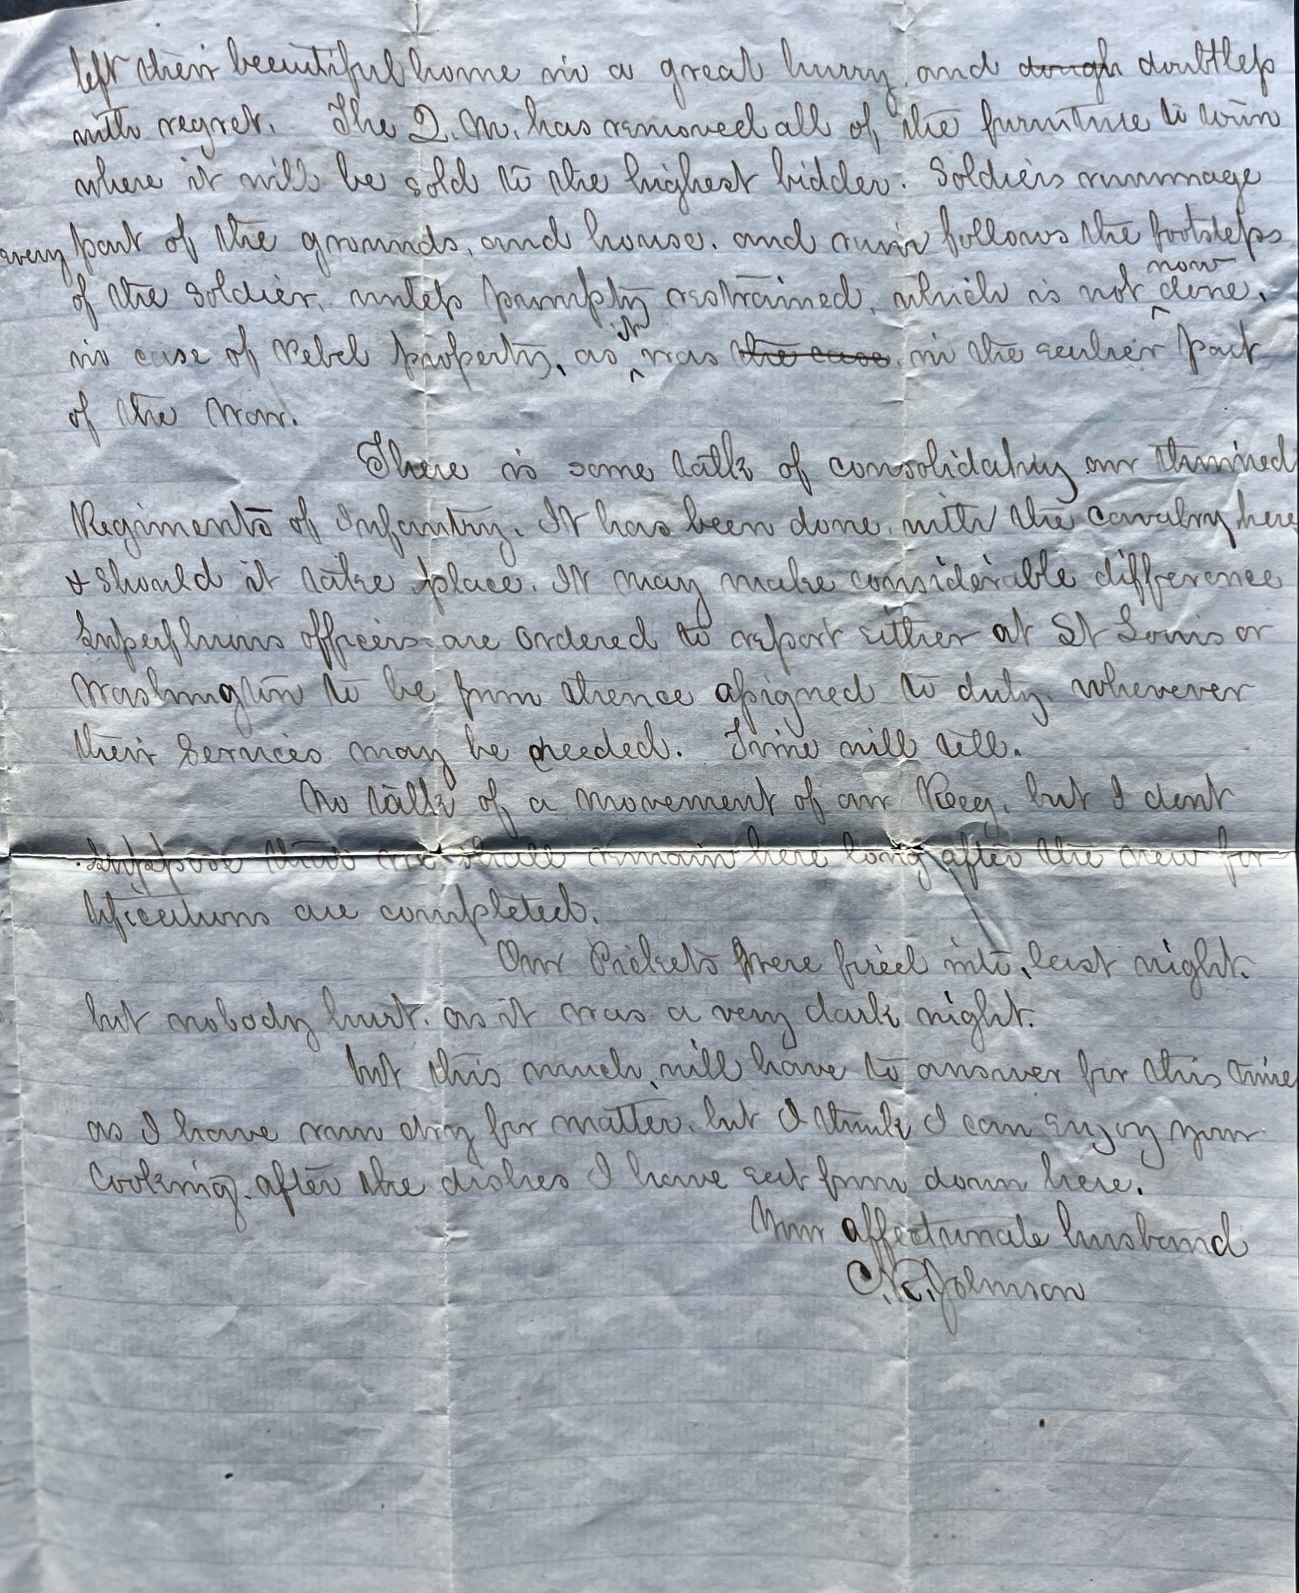 left their beautiful home in a great hurry, and dough doubtless
with regret. The Q.M. has removed all of the furniture to town
where it will be sold to the highest bidder. Soldiers rummage
every part of the grounds, and house, and ruin follows the footsteps
now
of the Soldier, unless promptly restrained, which is not done,
it
in case of Rebel property, as was the case, in the earlier part
of the war.
There is some talk of consolidating our thinned
Regiments of Infantry. It has been done, with the cavalry here
& should it take place. It may make considerable difference
Superfluous officers are ordered to report either at St Louis or
Washington to be from thence assigned to duty, wherever
their Services may be needed. Time will tell.
No talk of a movement of our Reg. but I dont
suppose that we shall remain here long after the new for-
tifications are completed.
Our Pickets were fired into, last night.
but nobody hurt. as it was a very dark night.
but this much, will have to answer for this time
as I have run dry for matter, but I think I can enjoy your
Cooking, after the dishes I have eat from down here.
Your affectionate husband
C.R. Johnson